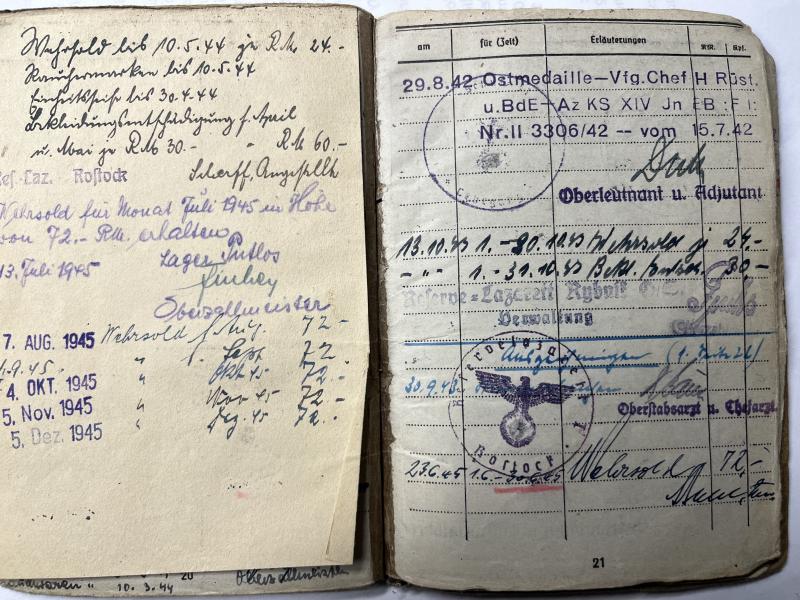 Wehrsold bis 10.5.44 je R.M. 24.-
Rauchermarken bis 10.5.44
bis 30.4.44
Bekleidungsentschädigung f. April
u. Mai je R.M. 30.- R.M. 60.-
Res. Laz. Rostock
Scherff, Angestellte
Wehrsold für Monat Juli 1945 in Höhe
von 72.- R.M. erhalten
Lager Putlos
13. Juli 1945
Oberzahlmeister
7. AUG. 1945 Wehrsold f. Aug. 72-
1.9.45 " Sept 72.
4. OKT. 1945 " Okt 45 72-
5. Nov. 1945 " Nov 45 72-
5. Dez. 1945 " Dez. 45 72.-
20
10.3.44
am
für (Zeit)
Erläuterungen
RM.
Rpf.
29.8.42 Ostmedaille-Vfg.Chef H Rüst.
u.BdE-Az KS XIV Jn EB :F I:
Nr.II 3306/42 -- vom 15.7.42
Oberleutnant u. Adjutant
13.10.43 1.-30.10.43 Wehrsold je 24-
- " - 1.-31.10.43 Bekl. 30,-
Reserve-Lazarett Rybnik
Verwaltung
30.9.43
Oberstabsarzt u. Chefarzt
Rostock
23.6.45 1.6.-30.6.45 Wehrsold 72,-
21